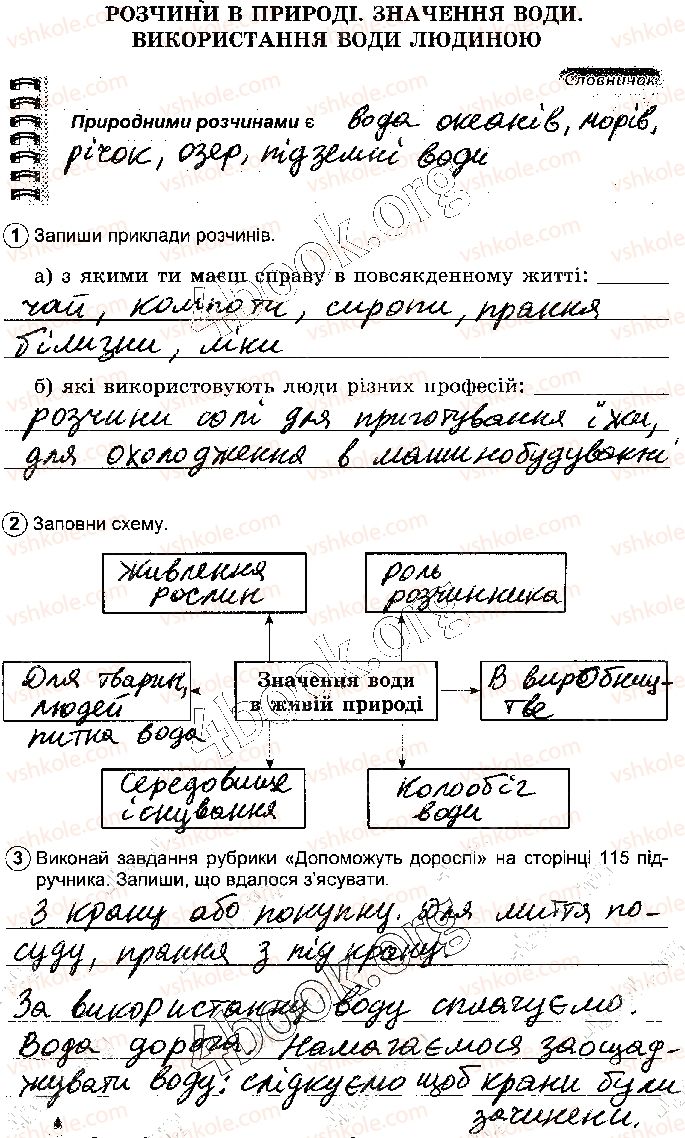 РОЗЧИНИ В ПРИРОДІ. ЗНАЧЕННЯ ВОДИ.
ВИКОРИСТАННЯ ВОДИ ЛЮДИНОЮ
Словничок
Природними розчинами є вода океанів, морів,
річок, озер, підземні води
1 Запиши приклади розчинів.
а) з якими ти маєш справу в повсякденному житті:
чай, компоти, сиропи, прання
білизни, ліки
б) які використовують люди різних професій:
розчини солі для приготування їжи,
для охолодження в машинобудуванні
2 Заповни схему.
Живлення
рослин
роль
розчинника
Для тварин,
людей
питна вода
Значення води
в живій природі
В виробниц-
тве
Середовище
існування
Колообіг
води
3 Виконай завдання рубрики «Допоможуть дорослі» на сторінці 115 під-
ручника. Запиши, що вдалося з'ясувати.
З крану або покупну. Для миття по-
суду, прання з під крану.
За використанну воду сплачуємо.
Вода дорога. Намагаємося заощад-
жувати воду: слідкуємо щоб крани були
зачинени.
vshkole.com
4book.org